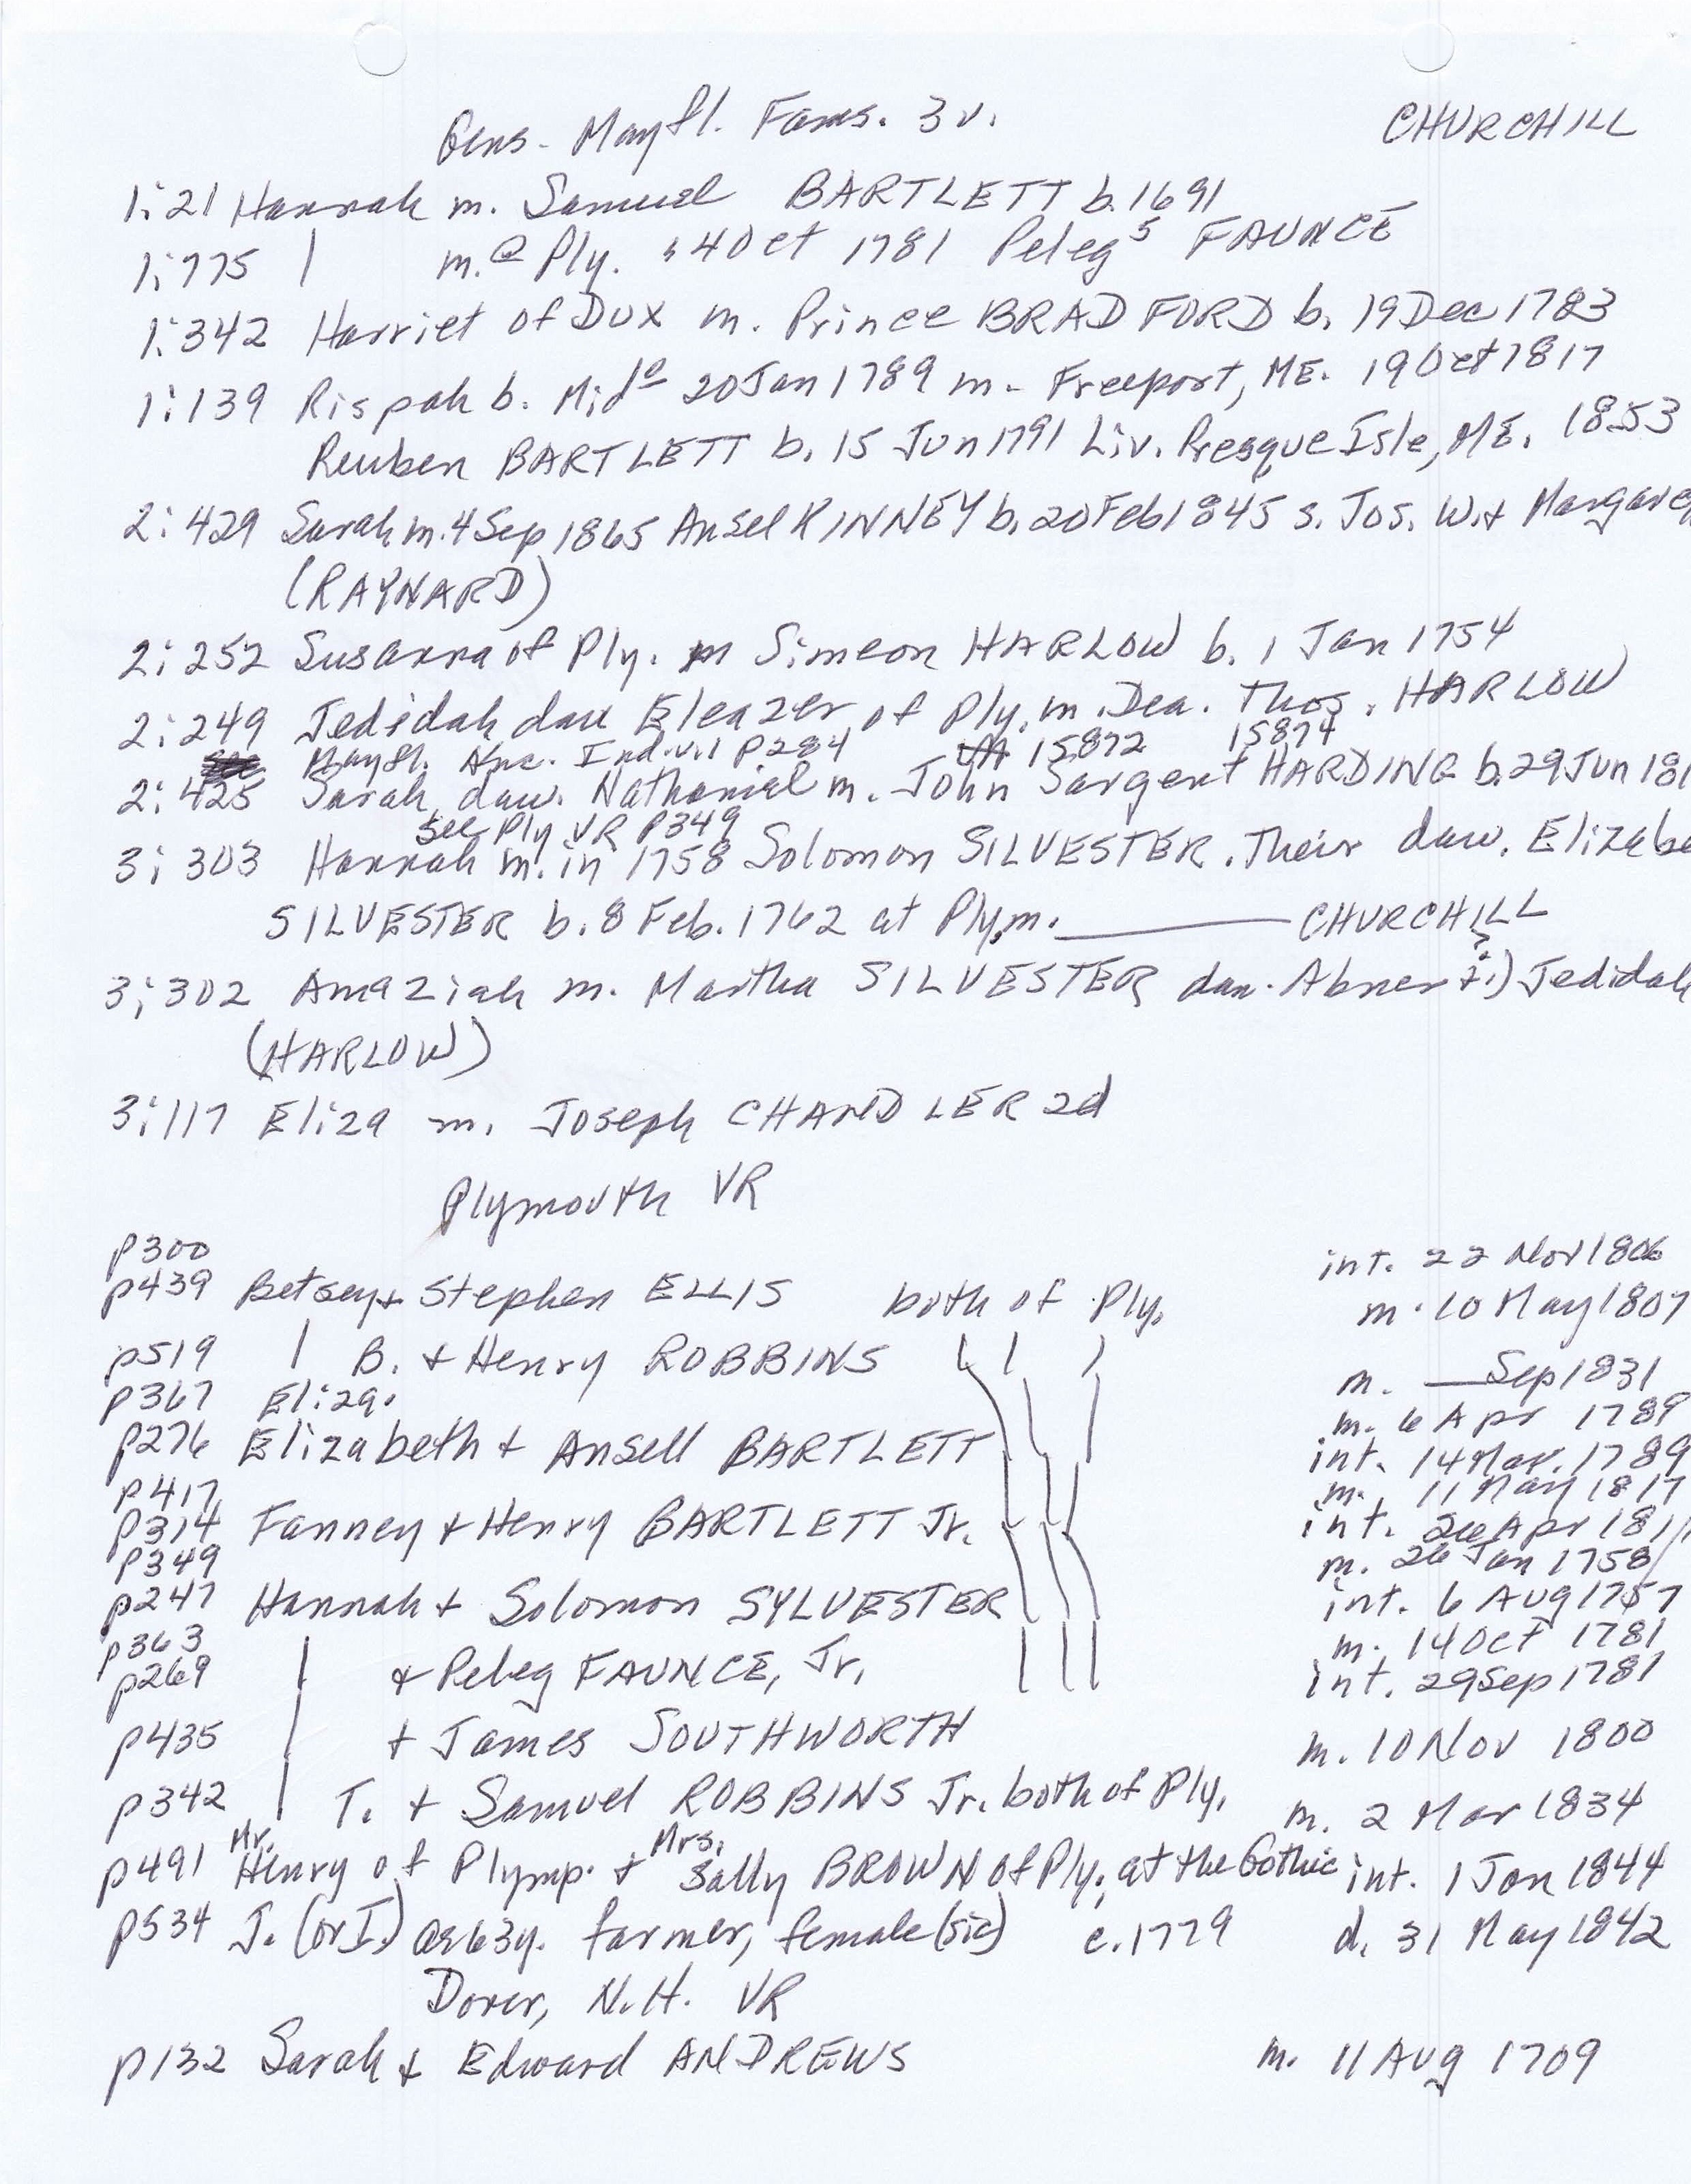 Gens. Mayfl. Fams. 3v. CHURCHILL
1:21 Hannah m. Samuel BARTLETT b. 1691
1:775 | m. @ Ply. 4 Oct 1781 Peleg5 FAUNCE
1:342 Harriet of Dux m. Prince BRADFORD b. 19 Dec 1783
1:139 Rispah b. Mido 20 Jan 1789 m. Freeport, ME. 19 Oct 1817
Reuben BARTLETT b. 15 Jun 1791 Liv. Presque Isle, ME. 1853
2:429 Sarah m. 4 Sep 1865 Ansel KINNEY b. 20 Feb 1845 s. Jos. W. + Margare
(RAYNARD)
2:252 Susanna of Ply. m Simeon HARLOW b. 1 Jan 1754
2:249 Jedidah dau Eleazer of Ply. m. Dea. Thos. HARLOW
Mayfl. Anc. Ind. v.1 p284 15872 15874
2:425 Sarah, dau. Nathanial m. John Sargent HARDING b. 29 Jun 181
See Ply VR p349
3:303 Hannah m. in 1758 Solomon SILVESTER. Their dau. Elizabe
SILVESTER b. 8 Feb. 1762 at Ply. m. ____ CHURCHILL
3:302 Amaziah m. Martha SILVESTER dau. Abner + ?) Jedidah
(HARLOW)
3:117 Eliza m. Joseph CHANDLER 2d
Plymouth VR
p300 int. 22 Nov 1806
p439 Betsey + Stephen ELLIS both of Ply. m. 10 May 1807
p519 | B. + Henry ROBBINS | | | m. __ Sep 1831
p367 Eliza. m. 6 Apr 1789
p276 Elizabeth + Ansell BARTLETT int. 14 Mar. 1789
p417 m. 11 May 1817
p314 Fanney + Henry BARTLETT Jr. int. 26 Apr 181
p349 m. 26 Jan 1758
p247 Hannah + Solomon SYLVESTER int. 6 Aug 1757
p363 m. 14 Oct 1781
p269 | + Peleg FAUNCE, Jr. | | | int. 29 Sep 1781
p435 | + James SOUTHWORTH m. 10 Nov 1800
p342 | T. + Samuel ROBBINS Jr. both of Ply. m. 2 Mar 1834
Mr. Mrs.
p491 Henry of Plymp. + Sally BROWN of Ply., at the Gothic int. 1 Jan 1844
p534 J. (or I.) as 63y. farmer, female (sic) c. 1779 d. 31 May 1842
Dover, N.H. VR
p132 Sarah + Edward ANDREWS m. 11 Aug 1709